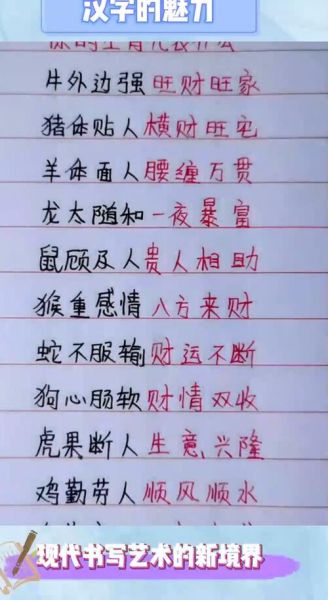 汉字的魅力
你的生肖代表什么
牛外边强旺财旺家
猪体贴人横财旺宅
羊体面人腰缠万贯
龙太随和一夜暴富
鼠顾及人贵人相助
猴重感情八方来财
蛇不服输财运不断
狗心肠软财情双收
虎果断人生意兴隆
鸡勤劳人顺风顺水
现代书写艺术的新境界